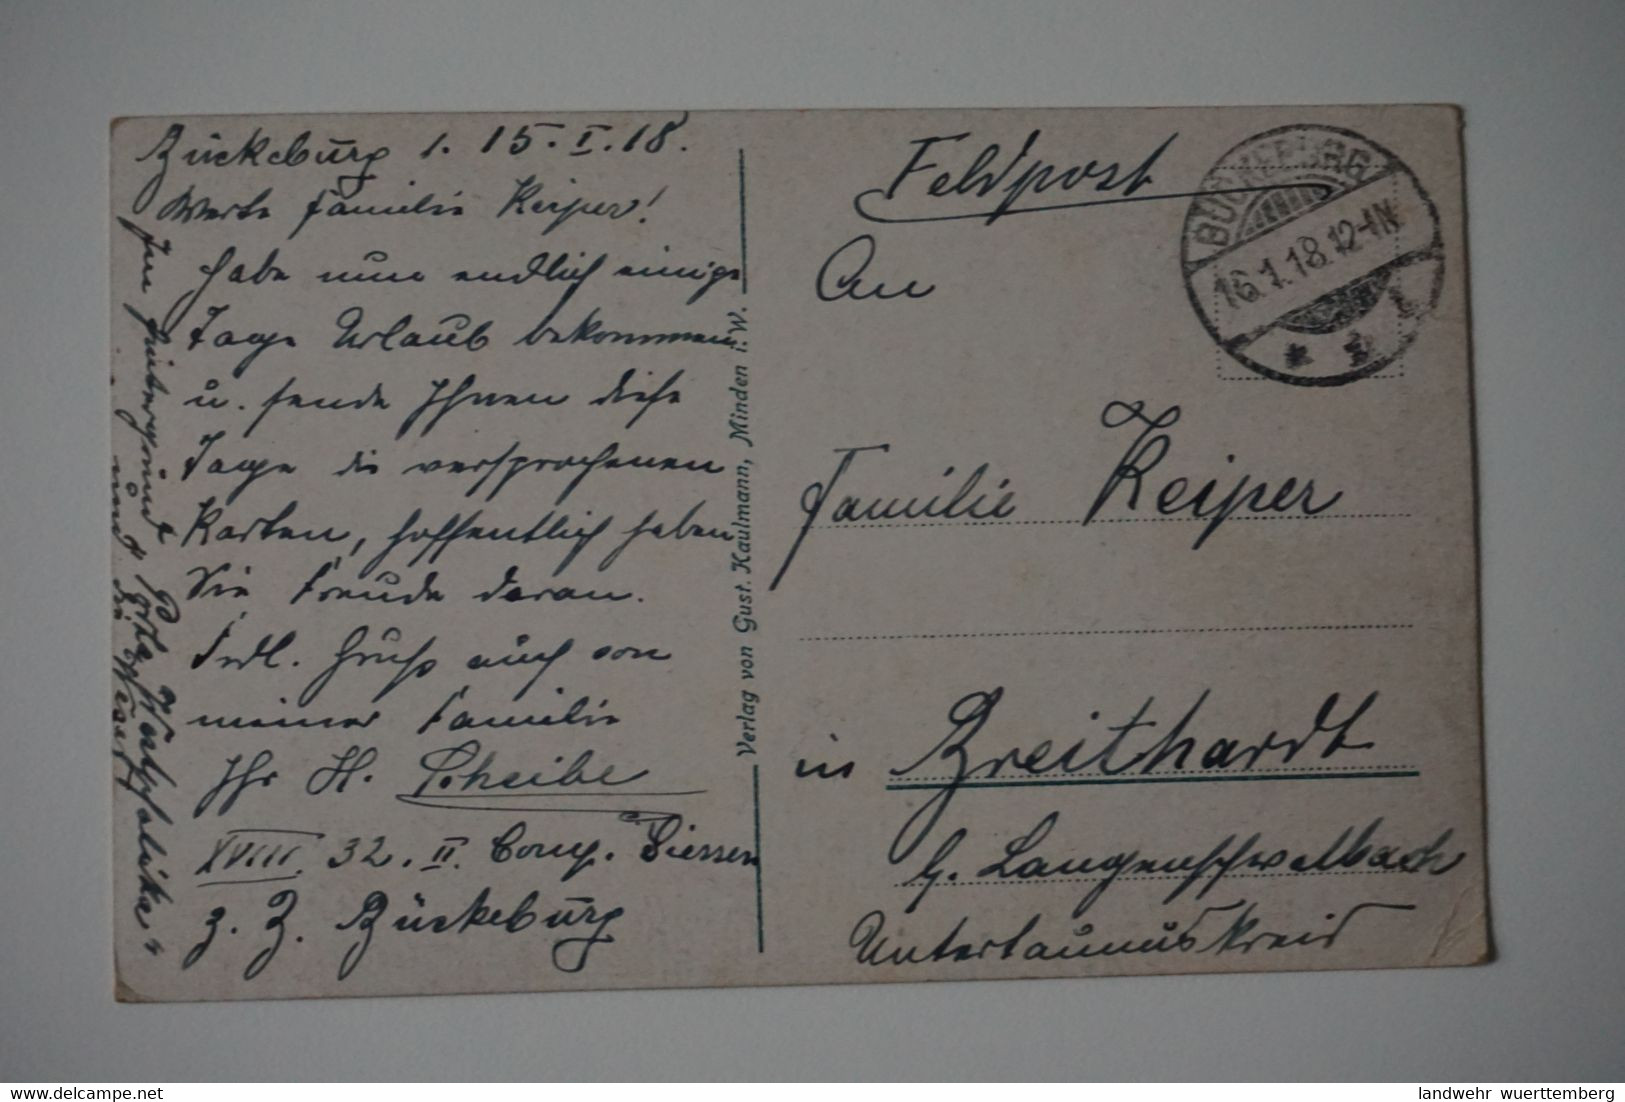 Bückeburg 1. 15.I.18.
Werte Familie Keiper!
Habe nun endlich einige
Tage Urlaub bekommen
u. sende Ihnen diese
Tage die versprochenen
Karten, hoffentlich haben
Sie Freude daran.
Frdl. Gruß auch von
meiner Familie
Ihr H. Scheibe
XVIII. 32. II. Comp. Giessen
z. Z. Bückeburg
Im Hintergrund Porta Westphalika
und die Weser
Verlag von Gust. Kaulmann, Minden i. W.
Feldpost
BÜCKEBURG
16.1.18.12-1N
* 1
An
Familie Keiper
in Breithardt
b. Langenschwalbach
Untertaunuskreis
delcampe.net
landwehr_wuerttemberg